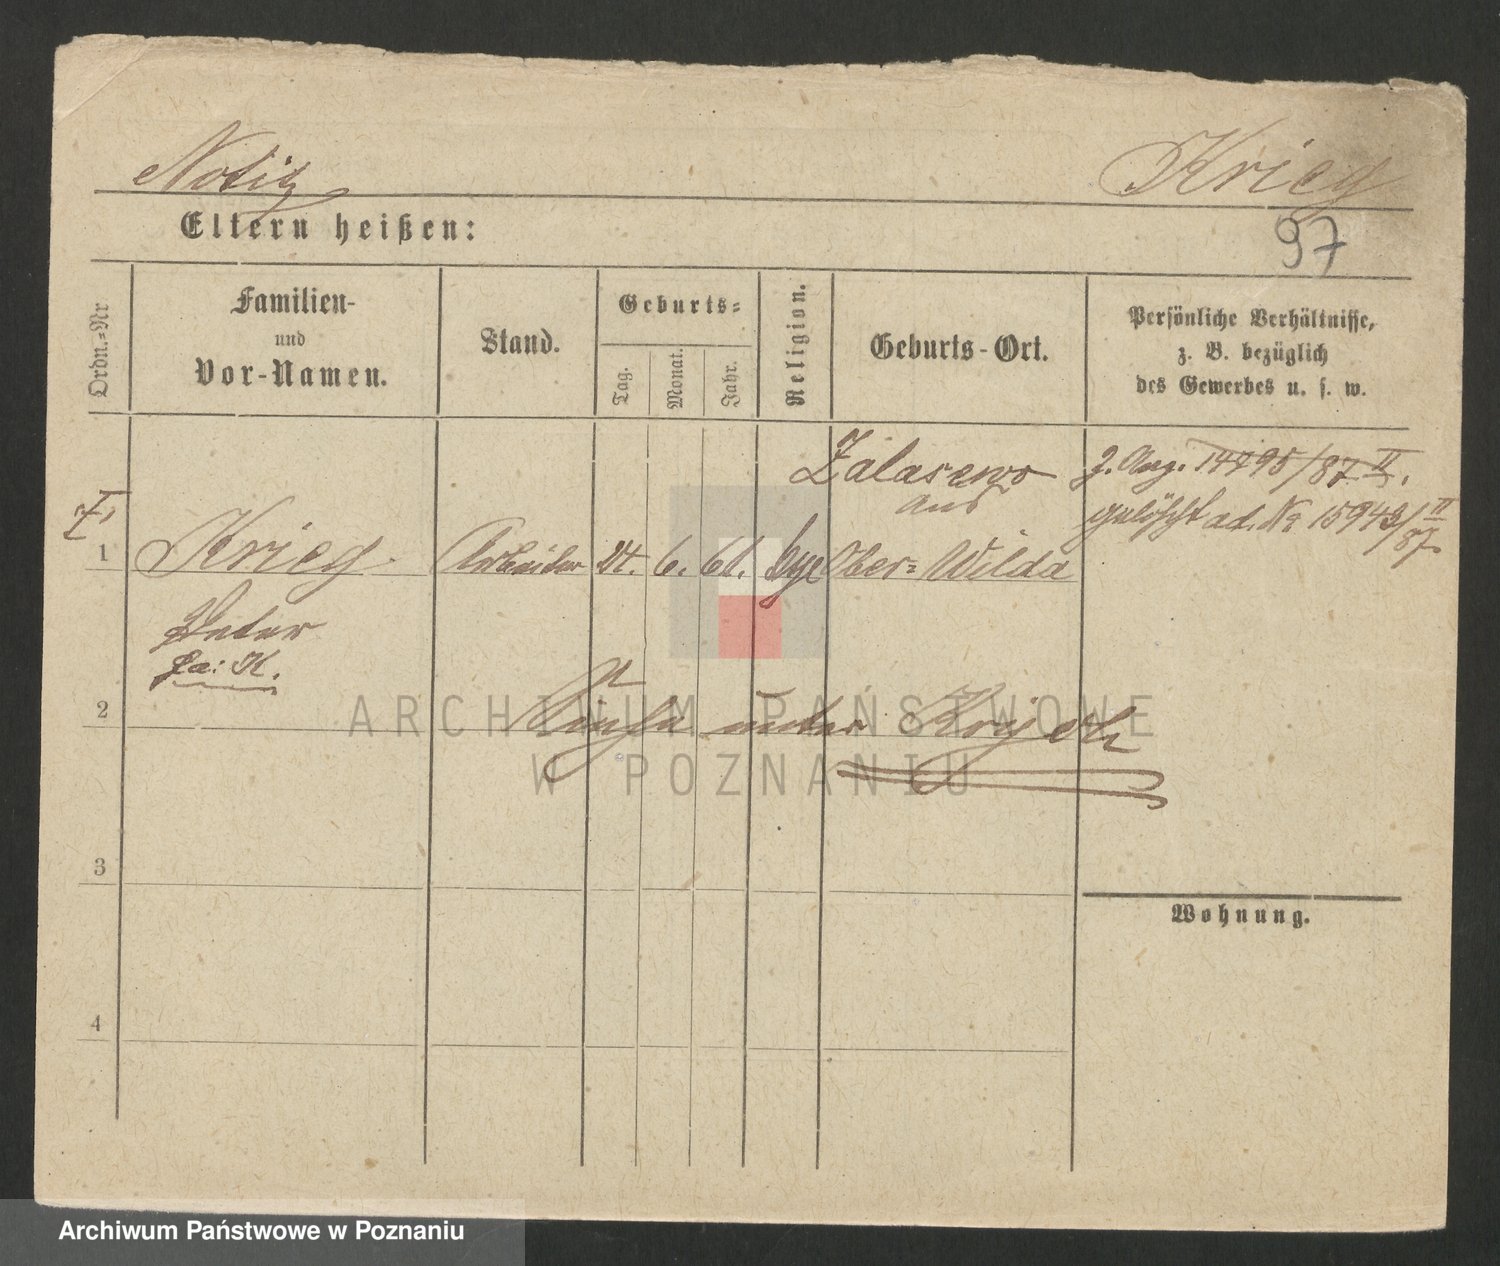 Notiz Krieg
Eltern heißen:
97
Ordn.-Nr
Familien-
und
Vor-Namen.
Stand.
Geburts-
Tag.
Monat.
Jahr.
Religion.
Geburts-Ort.
Persönliche Verhältnisse,
z. B. bezüglich
des Gewerbes u. s. w.
Zalasewo
aus
Ober-Wilda
14495/87 II.
gelöscht ad. No 15943/II 87.
I,
1 Krieg Arbeiter 24. 6. 61.
Peter
2
Siehe unter
ARCHIWUM PAŃSTWOWE
W POZNANIU
3
Wohnung.
4
Archiwum Państwowe w Poznaniu